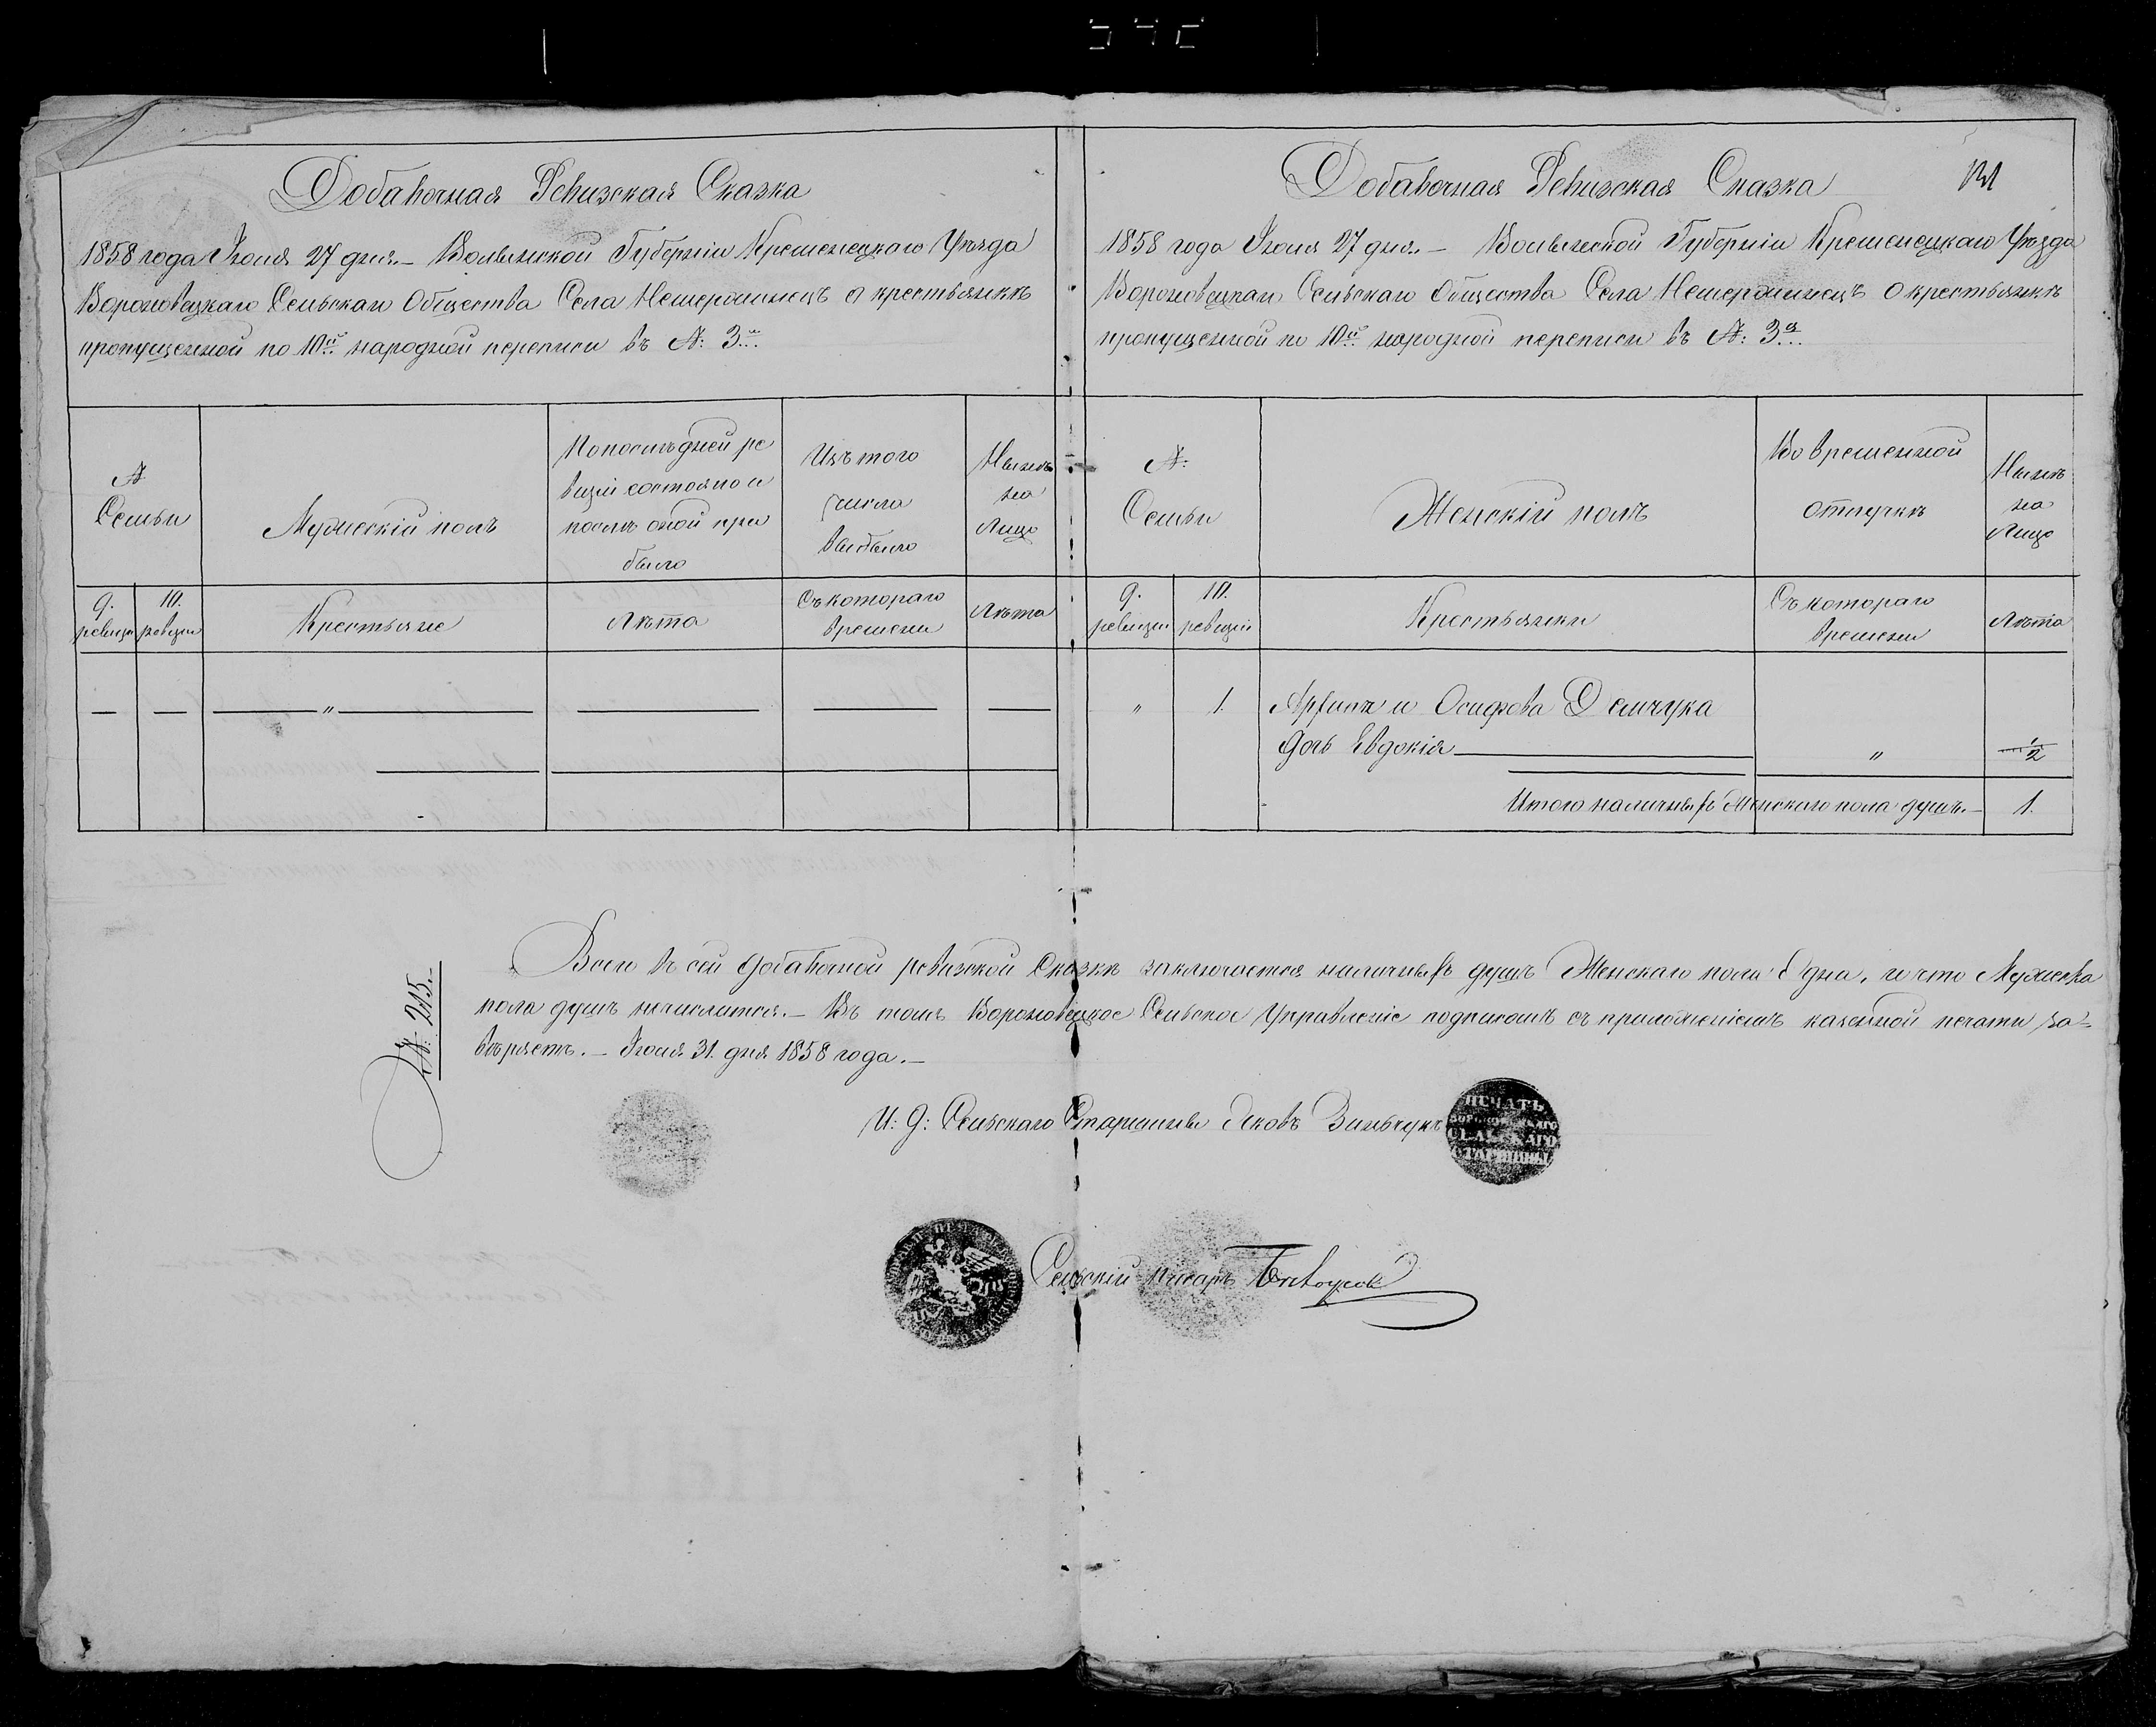 Добавочная Ревизская Сказка
1858 года Июля 27 дня. – Волынской Губерніи Кременецкаго Уѣзда
Вороновецкаго Сельскаго Общества Села о крестьянкѣ
пропущенной по 10й народной переписи въ №: 3й
№
Семьи
Мужескій полъ
По послѣдней ре
визіи состояло и
послѣ оной при
было
Изъ того
числа
выбыло
Нынѣ
на
Лицо
9.
ревизіи
10.
ревизіи
Крестьяне
Лѣта
Съ котораго
времени
Лѣта
— — — " — — — —
Добавочная Ревизская Сказка
1858 года Июля 27 дня. – Волынской Губерніи Кременецкаго Уѣзда
Вороновецкаго Сельскаго Общества Села о крестьянкѣ
пропущенной по 10й народной переписи въ №: 3й
№:
Семьи
Женскій полъ
Во временной
отлучкѣ
Нынѣ
на
Лицо
9.
ревизіи
10.
ревизіи
Крестьянки
Съ котораго
времени
Лѣта
" 1. Осифова Демчука
дочь Евдокія " 1/2
Итого наличныхъ Женскаго пола душъ. – 1.
Всего въ сей добавочной ревизской Сказкѣ заключается наличныхъ душъ Женскаго пола Одна, и что Мужеска
пола душъ нечислится. – Въ томъ Вороновецкое Сельское Управленіе подписомъ съ приложеніемъ казенной печати за=
вѣряетъ. – Июля 31. дня 1858 года. –
№: 215.
И: д: Сельскаго Старшины Яковъ Зинчукъ
ПЕЧАТЬ
СЕЛЬСКАГО
СТАРШИНЫ
Сельскій писарь